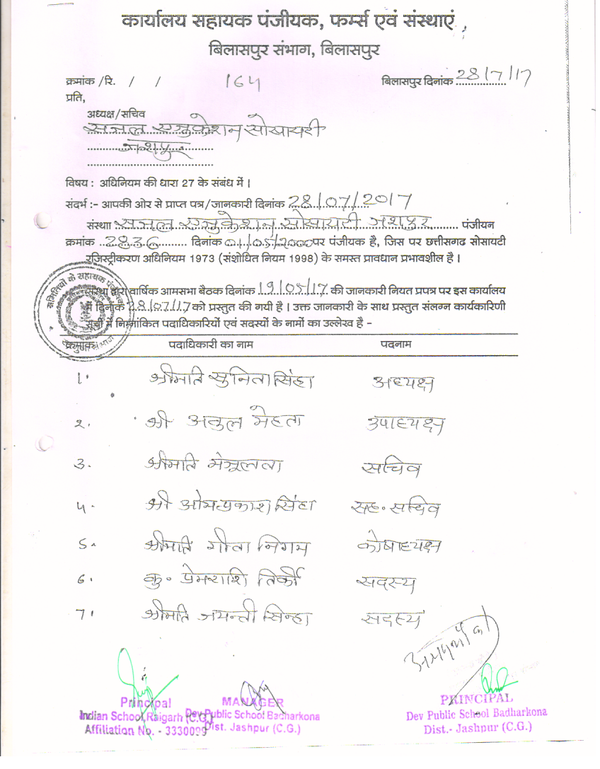 कार्यालय सहायक पंजीयक, फर्म्स एवं संस्थाएं,
बिलासपुर संभाग, बिलासपुर
क्रमांक /रि. / / 164 बिलासपुर दिनांक 28/7/17
प्रति,
अध्यक्ष/सचिव
एजुकेशन सोसायटी
जशपुर
विषय : अधिनियम की धारा 27 के संबंध में ।
संदर्भ :- आपकी ओर से प्राप्त पत्र/जानकारी दिनांक 28/07/2017
संस्था एजुकेशन सोसायटी जशपुर पंजीयन
क्रमांक 2836 दिनांक 01/05/2000 पर पंजीयक है, जिस पर छत्तीसगढ सोसायटी
रजिस्ट्रीकरण अधिनियम 1973 (संशोधित नियम 1998) के समस्त प्रावधान प्रभावशील है ।
संस्था द्वारा वार्षिक आमसभा बैठक दिनांक 19/05/17 की जानकारी नियत प्रपत्र पर इस कार्यालय
में दिनांक 28/07/17 को प्रस्तुत की गयी है । उक्त जानकारी के साथ प्रस्तुत संलग्न कार्यकारिणी
सूची में निम्नांकित पदाधिकारियों एवं सदस्यों के नामों का उल्लेख है -
क्रमांक पदाधिकारी का नाम पदनाम
1. श्रीमति सुनिता सिंहा अध्यक्ष
2. श्री अतुल मेहता उपाध्यक्ष
3. श्रीमति मंजूलता सचिव
4. श्री ओमप्रकाश सिंहा सह. सचिव
5. श्रीमति गीता निगम कोषाध्यक्ष
6. कु. प्रेमराशि तिर्की सदस्य
7. श्रीमति जयन्ती सिन्हा सदस्य
Principal
Indian School, Raigarh (C.G.)
Affiliation No. - 3330099
MANAGER
Dev Public School Badharkona
Dist. Jashpur (C.G.)
PRINCIPAL
Dev Public School Badharkona
Dist.- Jashpur (C.G.)